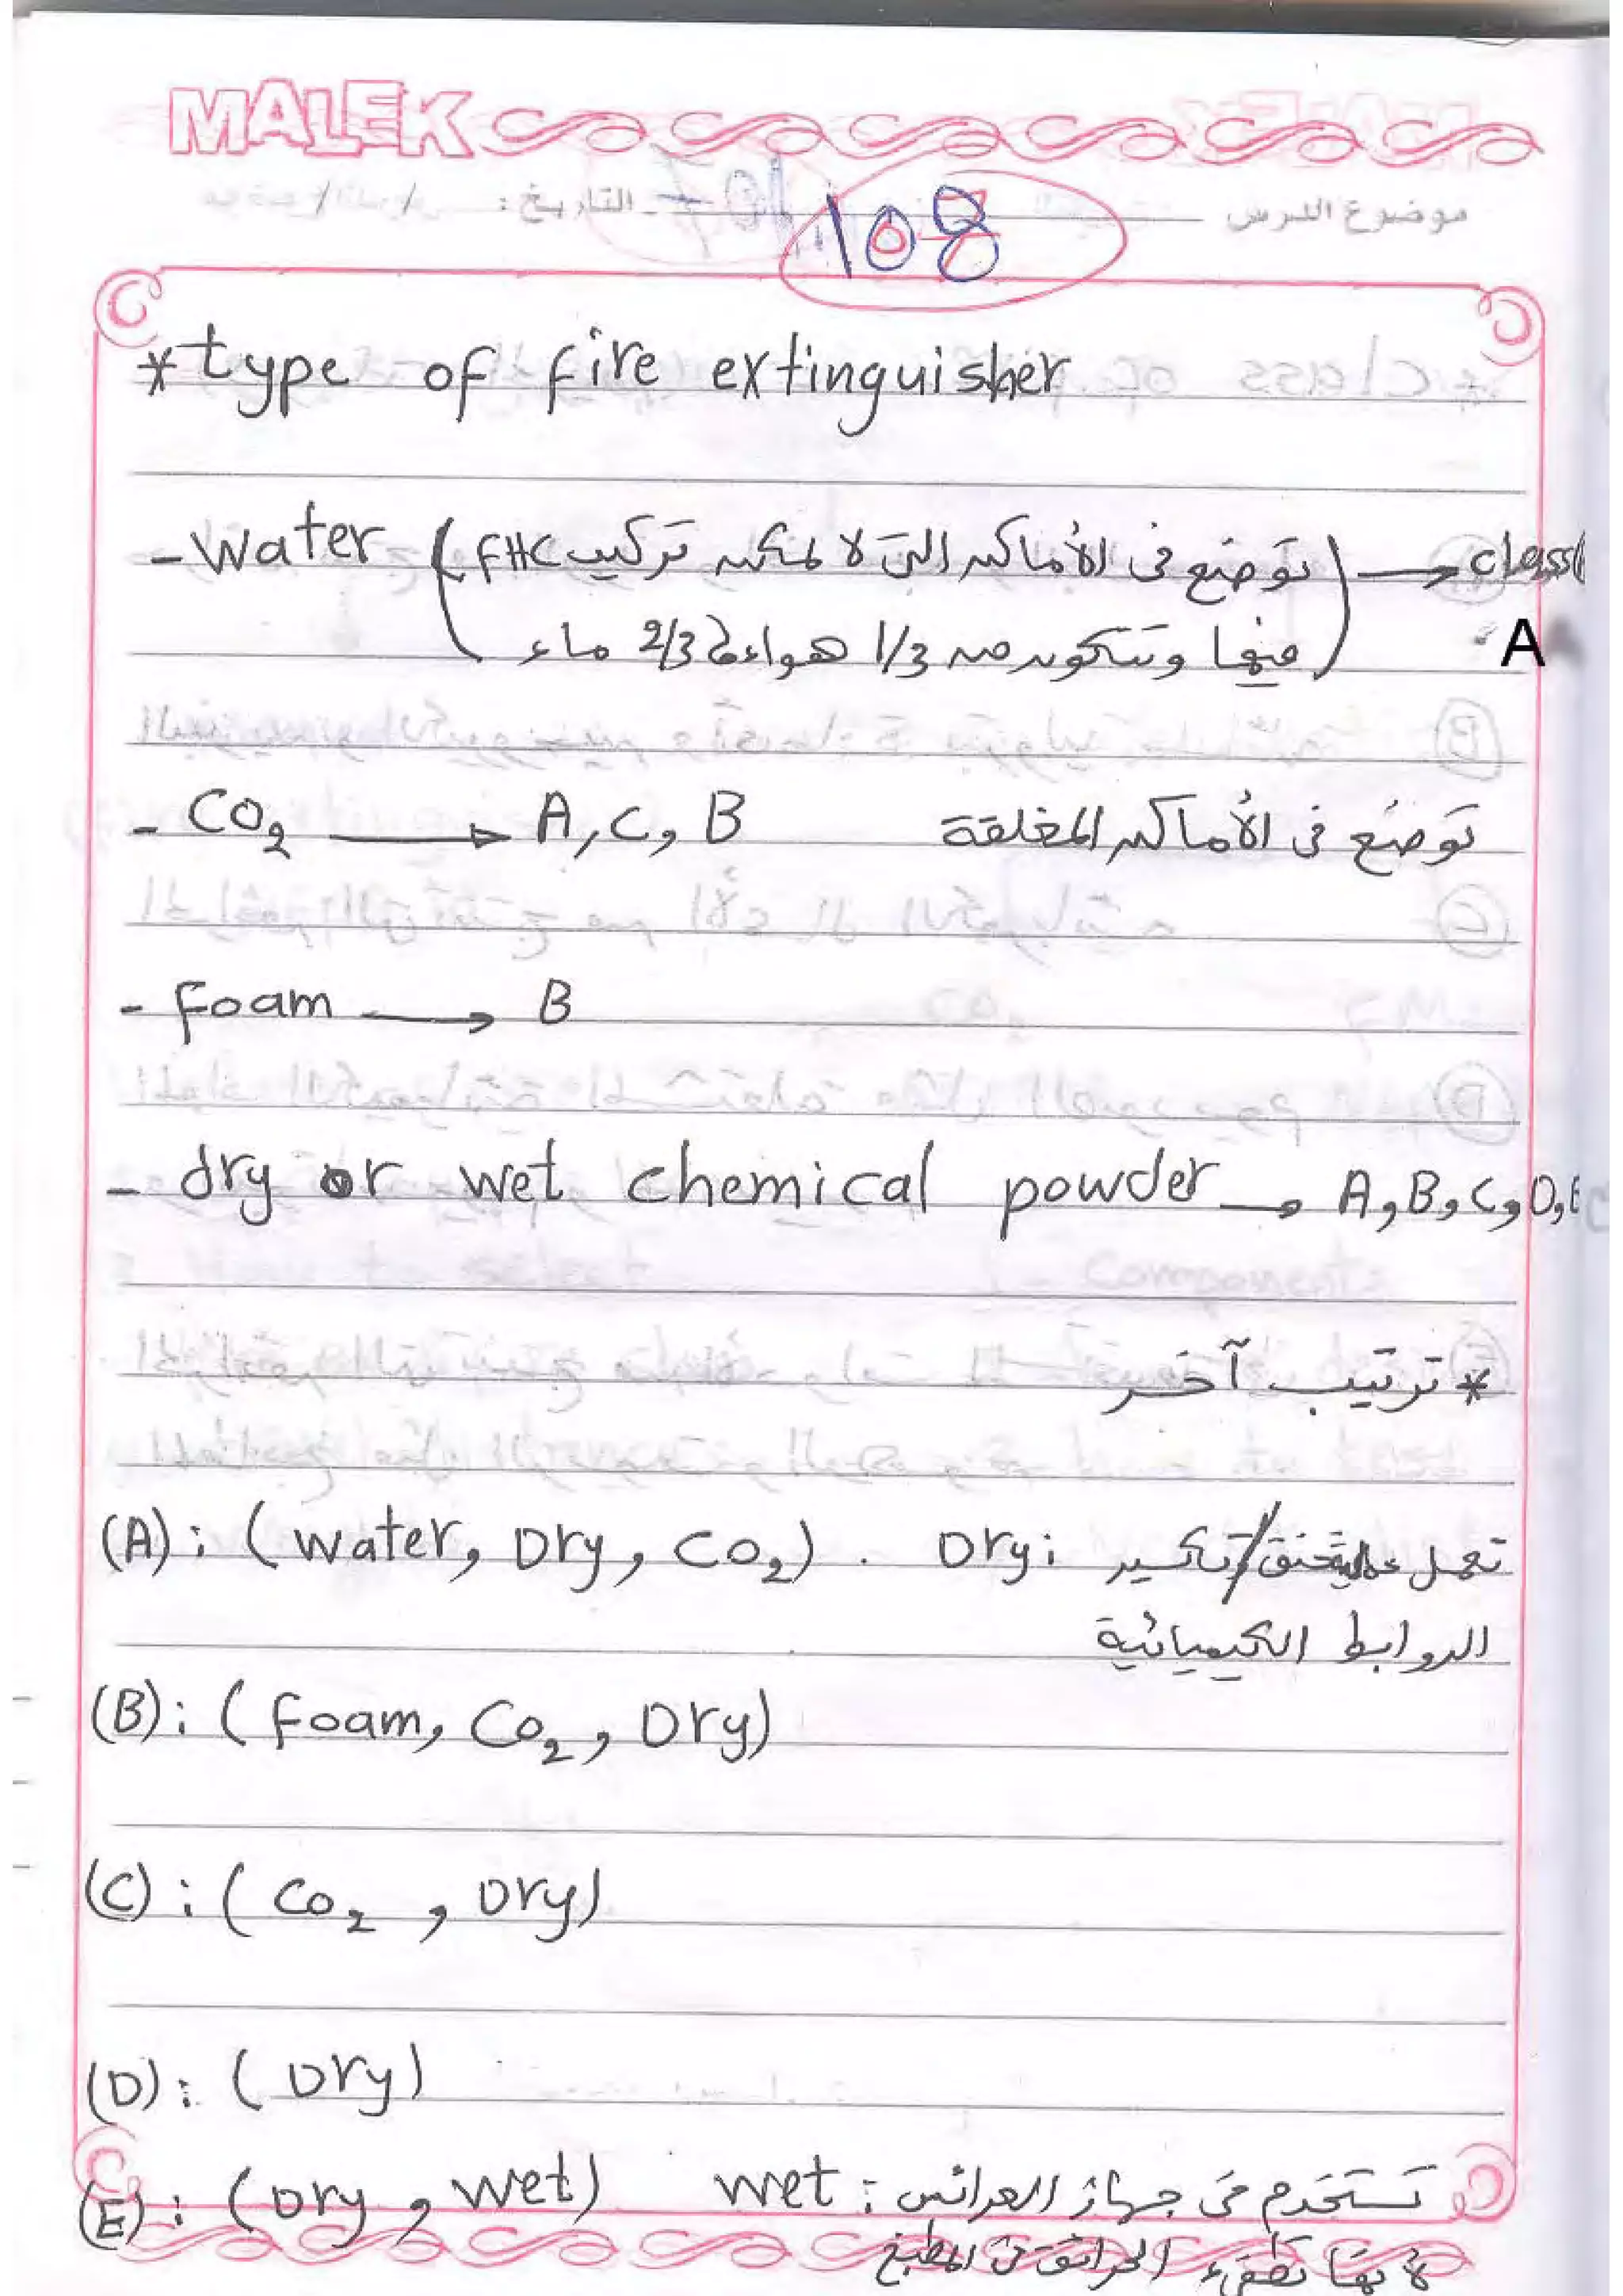 MALEK
موضوع الدرس
التاريخ : / /
108
* type of fire extinguisher
- Water (توضع فى الأماكن التى لا يمكن تركيب FHC → class
فيها وتتكون من 1/3 هواء و 2/3 ماء) A
- CO2 → A, C, B توضع فى الأماكن المغلقة
- Foam → B
- dry or wet chemical powder → A, B, C, D, E
* ترتيب آخر
(A): (water, Dry, CO2). Dry: تعمل تكسير
الروابط الكيميائية
(B): (Foam, CO2, Dry)
(C): (CO2, Dry)
(D): (Dry)
(E): (Dry, wet) wet: تستخدم فى جهاز
لأنها تطفىء الحرائق فى المطبخ